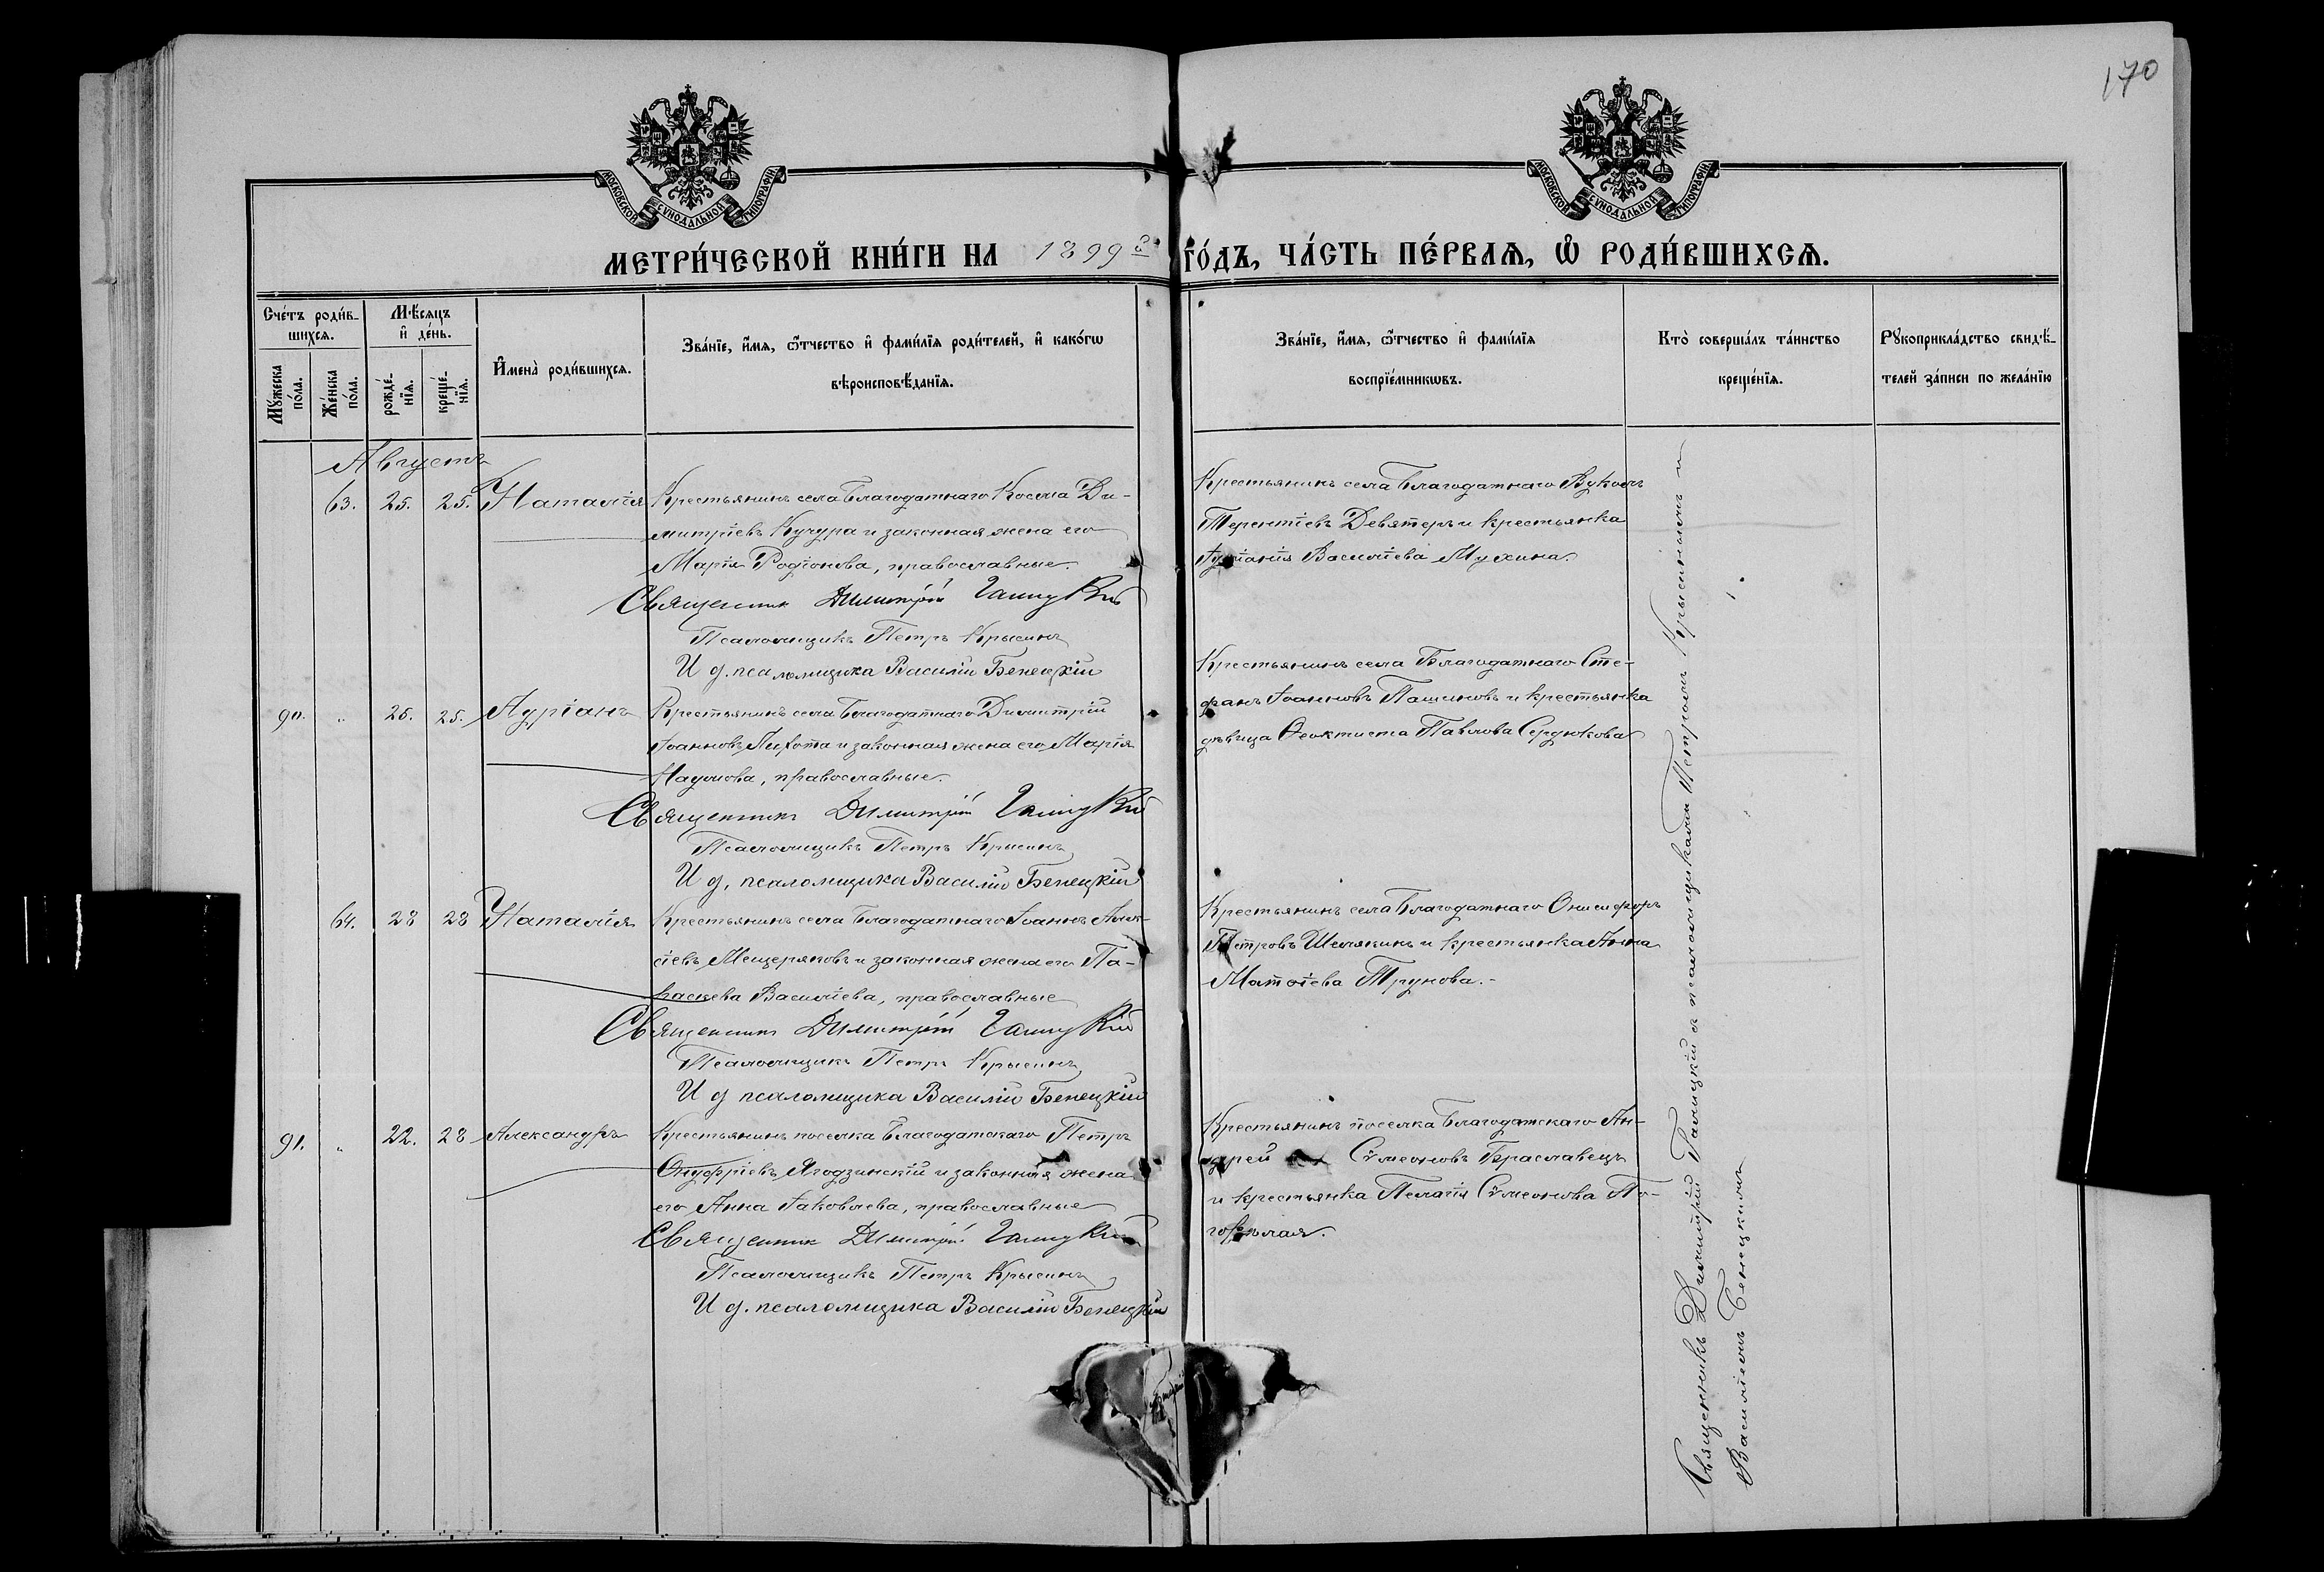 170
МОСКОВСКОЙ СУНОДАЛЬНОЙ ТИПОГРАФІИ
МОСКОВСКОЙ СУНОДАЛЬНОЙ ТИПОГРАФІИ
МЕТРИ́ЧЕСКОЙ КНИ́ГИ НА 1899й ГО́ДЪ, ЧА́СТЬ ПЕ́РВАЯ, Ѽ РОДИ́ВШИХСЯ.
Сче́тъ роди́в-
шихся.
Мꙋ́жеска по́ла.
Же́нска по́ла.
Мѣ́сяцъ
и҆ де́нь.
рожде́-
нїя.
креще́-
нїя.
И҆мена̀ роди́вшихся.
Зва́нїе, и҆́мя, ѻ҆́тчество и҆ фами́лїя роди́телей, и҆ како́гѡ
вѣроисповѣ́данїя.
Зва́нїе, и҆́мя, ѻ҆́тчество и҆ фами́лїя
воспрїе́мникѡвъ.
Кто̀ соверша́лъ та́инство
креще́нїя.
Рꙋкоприкла́дство свидѣ́-
телей за́писи по жела́нїю
Августъ
63. 25. 25. Наталія
Крестьянинъ села Благодатнаго Косма Ди-
митріевъ Кучура и законная жена его
Марія Родіонова, православные.
Священник Димитрій Галицкій
Псаломщикъ Петръ Крысинъ
И д. псаломщика Василій Бенецкій
Крестьянинъ села Благодатнаго Вуколъ
Терентіевъ Девятеръ и крестьянка
Іуліанія Василіева Мухина.
90. " 25. 25. Адріанъ
Крестьянинъ села Благодатнаго Димитрій
Іоанновъ Лихота и законная жена его Марія
Наумова, православные.
Священник Димитрій Галицкій
Псаломщикъ Петръ Крысинъ
И д. псаломщика Василій Бенецкій
Крестьянинъ села Благодатнаго Сте-
фанъ Іоанновъ Пашиновъ и крестьянка
дѣвица Ѳеоктиста Павлова Сердюкова
64. 28 28 Наталія
Крестьянинъ села Благодатнаго Іоаннъ Алек-
сіевъ Мещеряковъ и законная жена его Па-
раскева Василіева, православные
Священник Димитрій Галицкій
Псаломщикъ Петръ Крысинъ
И д псаломщика Василій Бенецкій
Крестьянинъ села Благодатнаго Онисифоръ
Петровъ Шелякинъ и крестьянка Анна
Матѳіева Трунова.
91. " 22. 28 Александръ
Крестьянинъ поселка Благодатскаго Петръ
Онуфріевъ Ягодзинскій и законная жена
его Анна Іаковлева, православные
Священник Димитрій Галицкій
Псаломщикъ Петръ Крысинъ
И д. псаломщика Василій Бенецкій
Крестьянинъ поселка Благодатскаго Ан-
дрей Сѵмеоновъ Браславецъ
и крестьянка Пелагія Сѵмеонова По-
горѣлая.
Священникъ Димитрій Галицкій съ псаломщиками Петромъ Крысинымъ и
Василіемъ Бенецкимъ